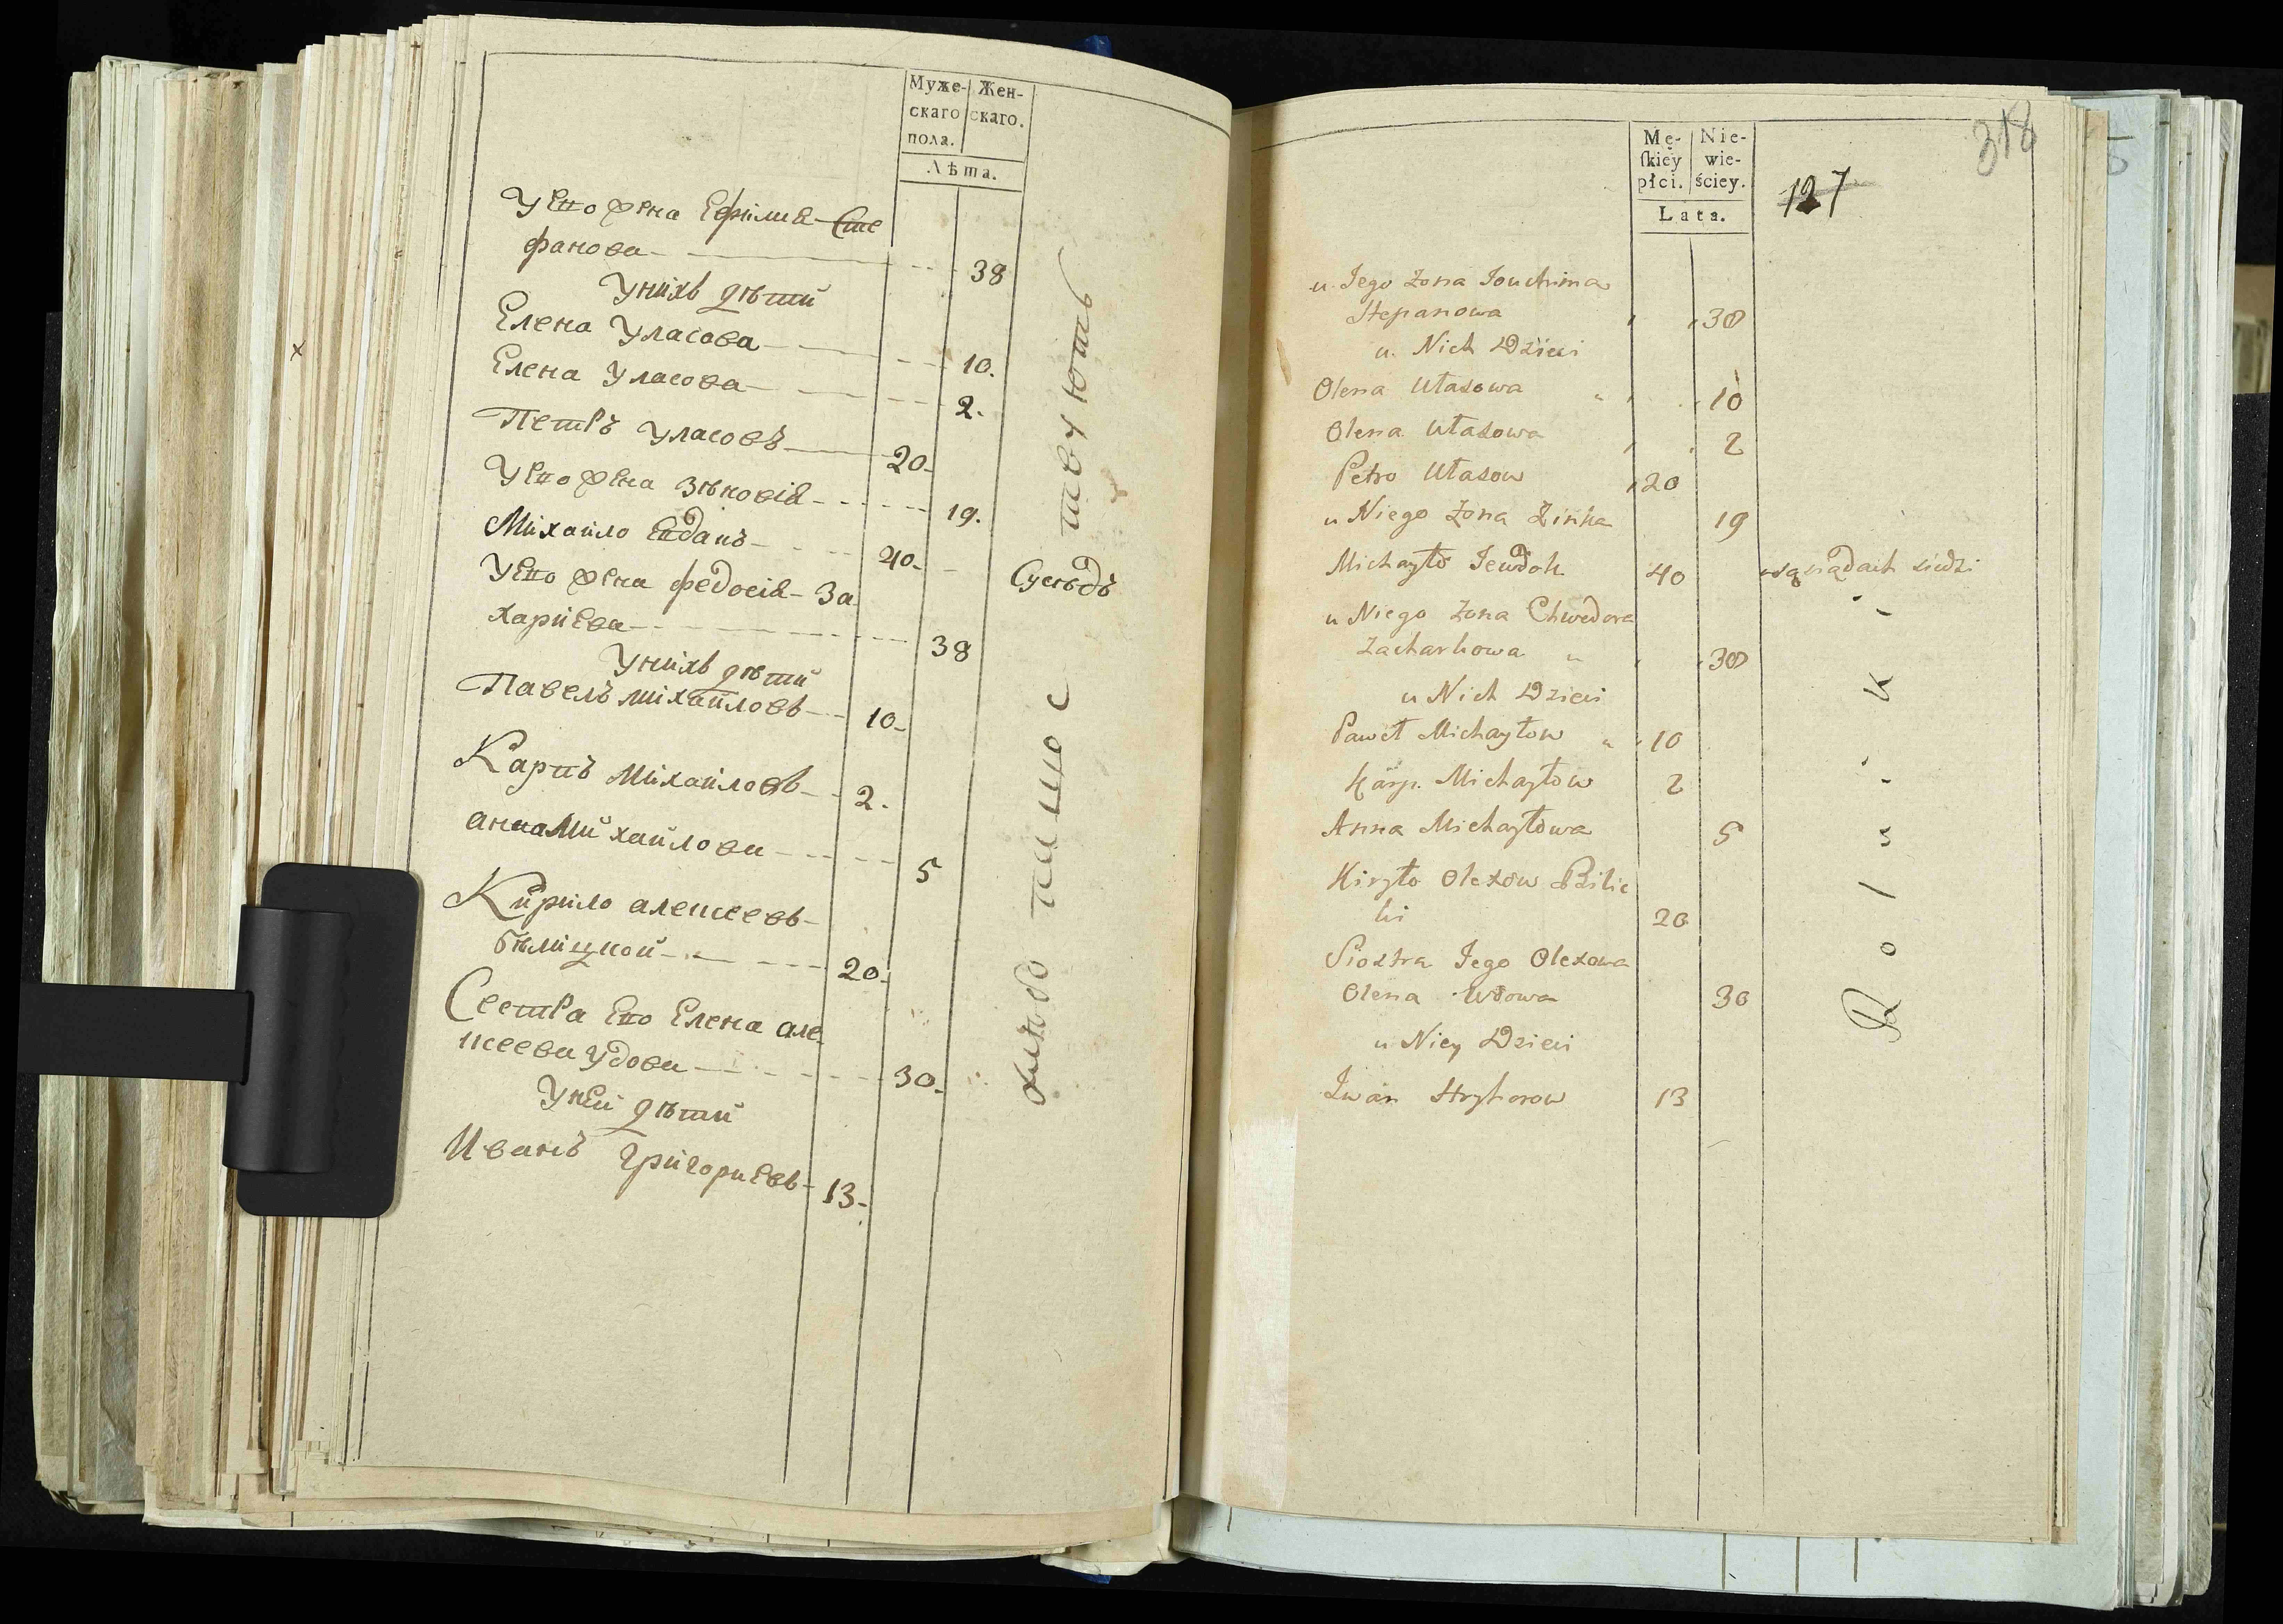 Муже-
скаго
пола.
Жен-
скаго.
Лѣта.
У его жена Ефимия Сте
фанова 38
У нихъ дѣти
Елена Уласова 10.
Елена Уласова 2.
Петръ Уласовъ 20
У его жена Зѣновія 19.
Михайло 40
Сусѣдъ
У его жена Федосія За
харіева 38
У нихъ дѣти
Павелъ Михайловъ 10
Карпъ Михайловъ 2.
Анна Михайлова 5
Кирило Алексеевъ
Бѣлицкой 20
Сестра его Елена Але
ксеева удова 30
У ней дѣти
Иванъ Григориевъ 13
хлѣбопашествуютъ
318
127
Mę-
skiéy
płci.
Nie-
wie-
ściey.
Lata.
u Jego Żona Jouchima
Stepanowa 38
u Nich Dzieci
Olena Ułasowa 10
Olena Ułasowa 2
Petro Ułasow 20
u Niego Żona Zinka 19
Michayło Jewdoh 40
w sąsiadach siedzi
u Niego Żona Chwedora
Zacharkowa 38
u Nich Dzieci
Paweł Michayłow 10
Karp Michayłow 2
Anna Michayłowa 5
Kiryło Olexow Bilic
ki 20
Siostra Jego Olexowa
Olena Wdowa 30
u Niey Dzieci
Iwan Hryhorow 13
Rolniki